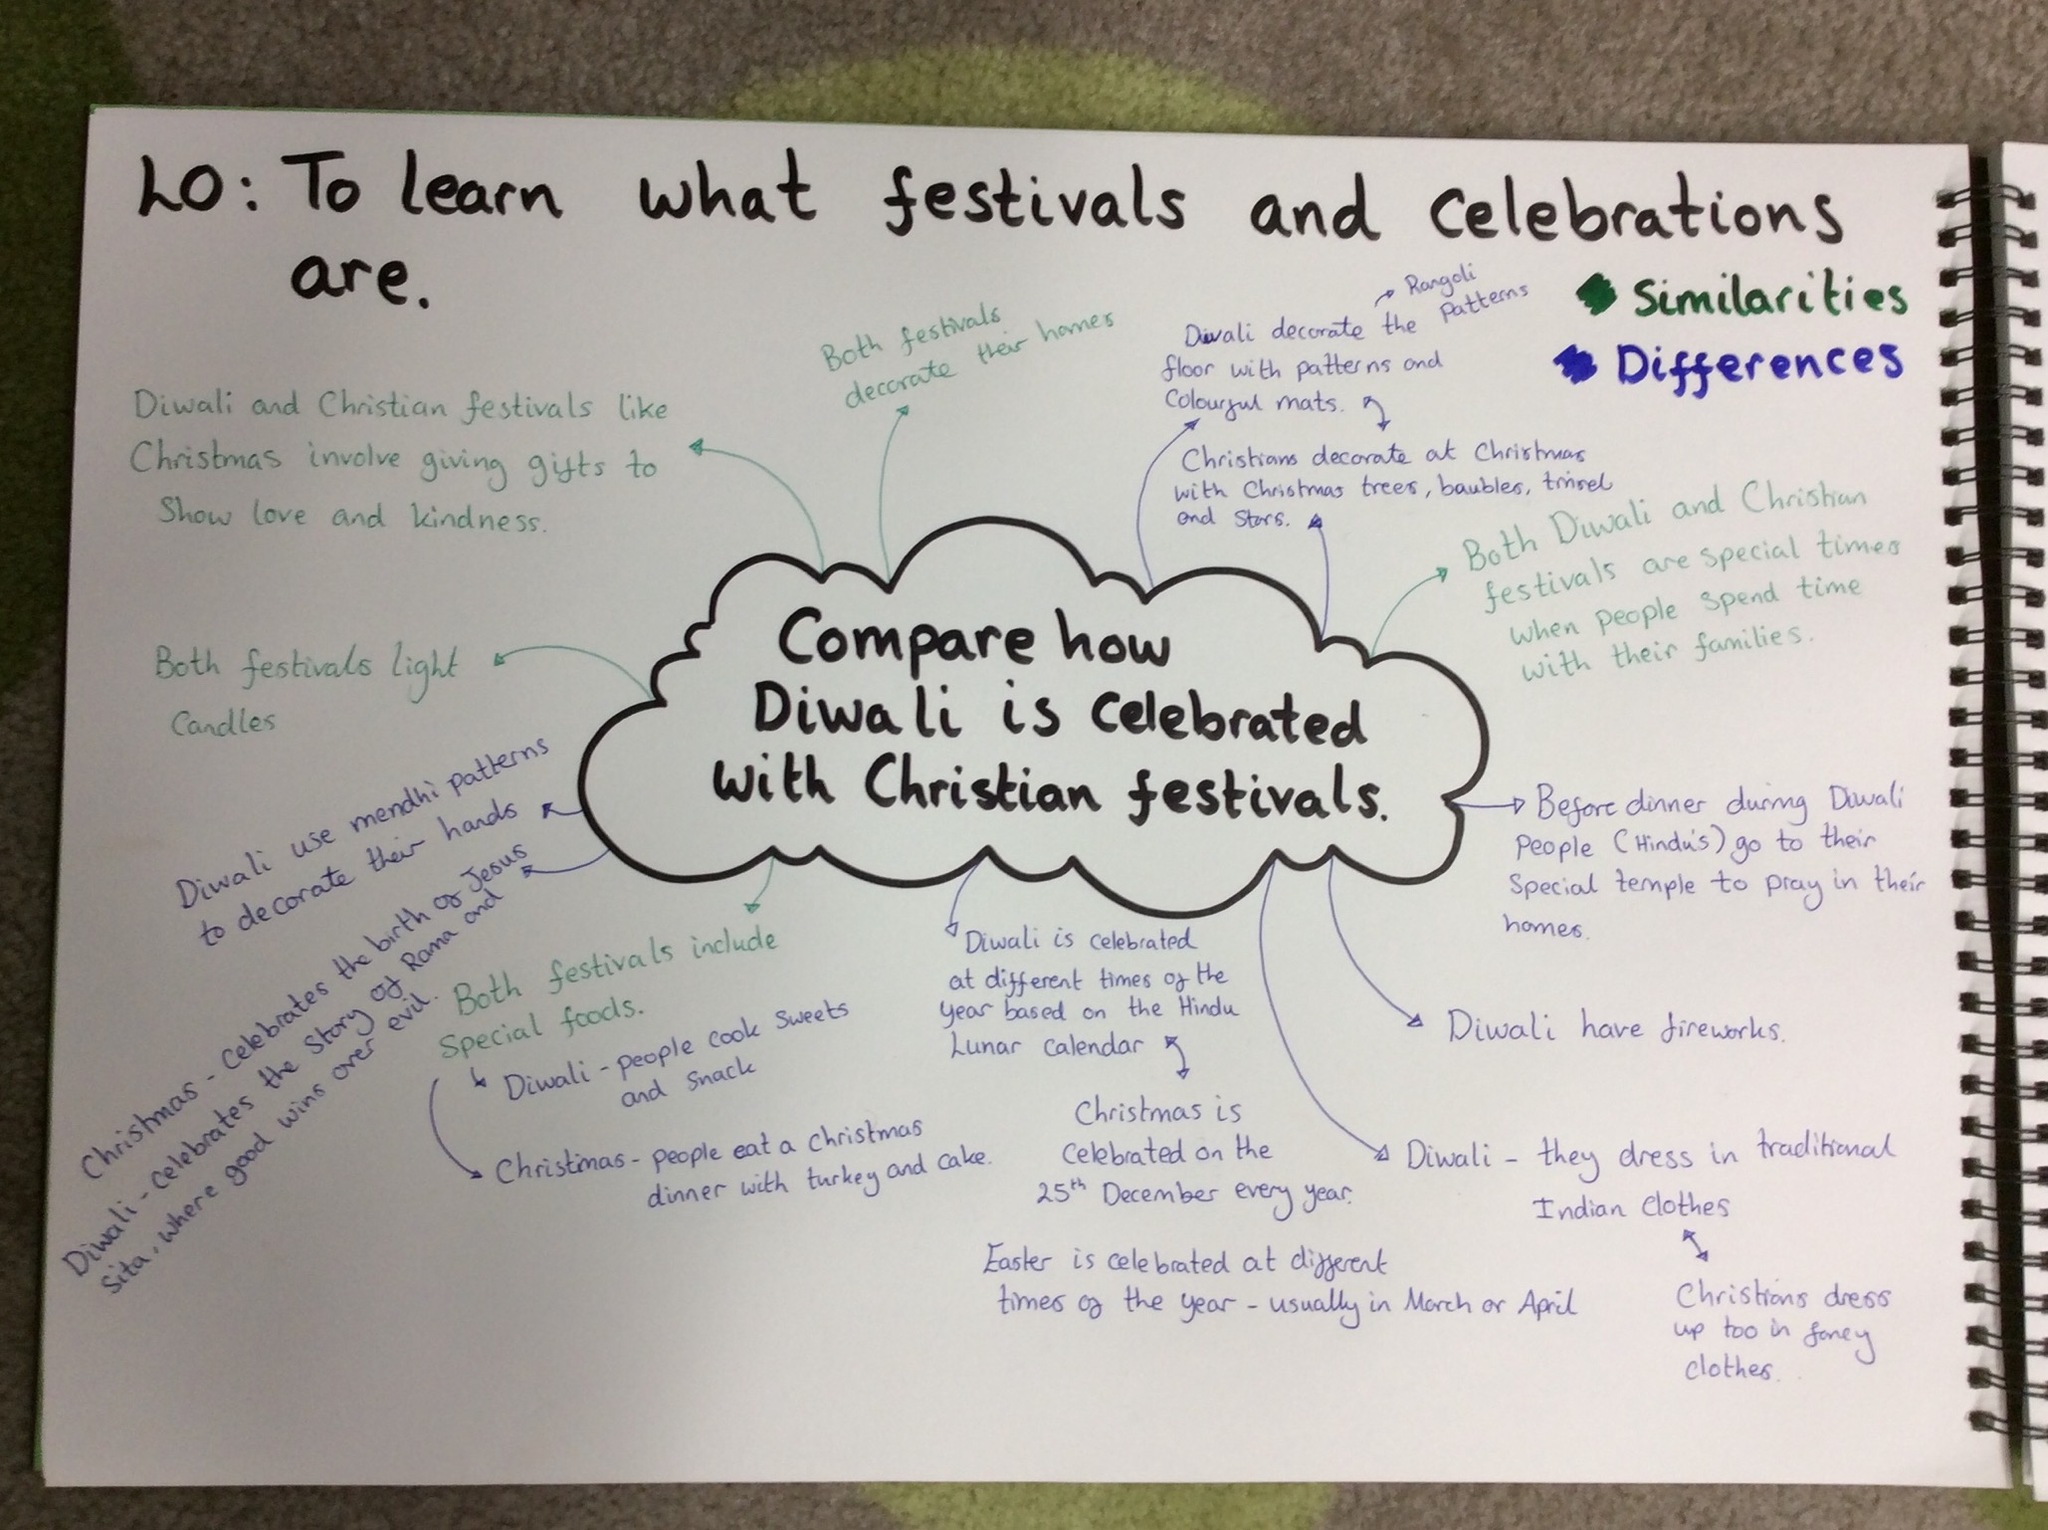 LO: To learn what festivals and celebrations
are.
Similarities
Differences
Compare how
Diwali is celebrated
with Christian festivals.
Diwali and Christian festivals like
Christmas involve giving gifts to
Show love and kindness.
Both festivals
decorate their homes
Rangoli
patterns
Diwali decorate the
floor with patterns and
Colourful mats.
Christians decorate at Christmas
with Christmas trees, baubles, tinsel
and stars.
Both Diwali and Christian
festivals are special times
when people spend time
with their families.
Both festivals light
Candles
Diwali use mendhi patterns
to decorate their hands
Christmas - Celebrates the birth of Jesus
Diwali - Celebrates the Story of Rama and
Sita, where good wins over evil.
Both festivals include
Special foods.
Diwali - people cook sweets
and snack
Christmas - people eat a Christmas
dinner with turkey and cake.
Diwali is celebrated
at different times of the
year based on the Hindu
Lunar calendar
Christmas is
celebrated on the
25th December every year.
Easter is celebrated at different
times of the year - usually in March or April
Before dinner during Diwali
People (Hindu's) go to their
Special temple to pray in their
homes.
Diwali have fireworks.
Diwali - they dress in traditional
Indian clothes
Christians dress
up too in fancy
clothes.